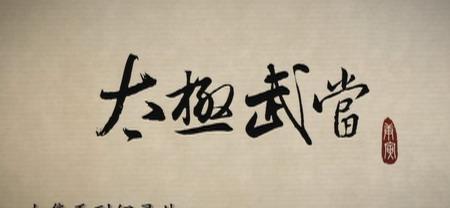 太極武當